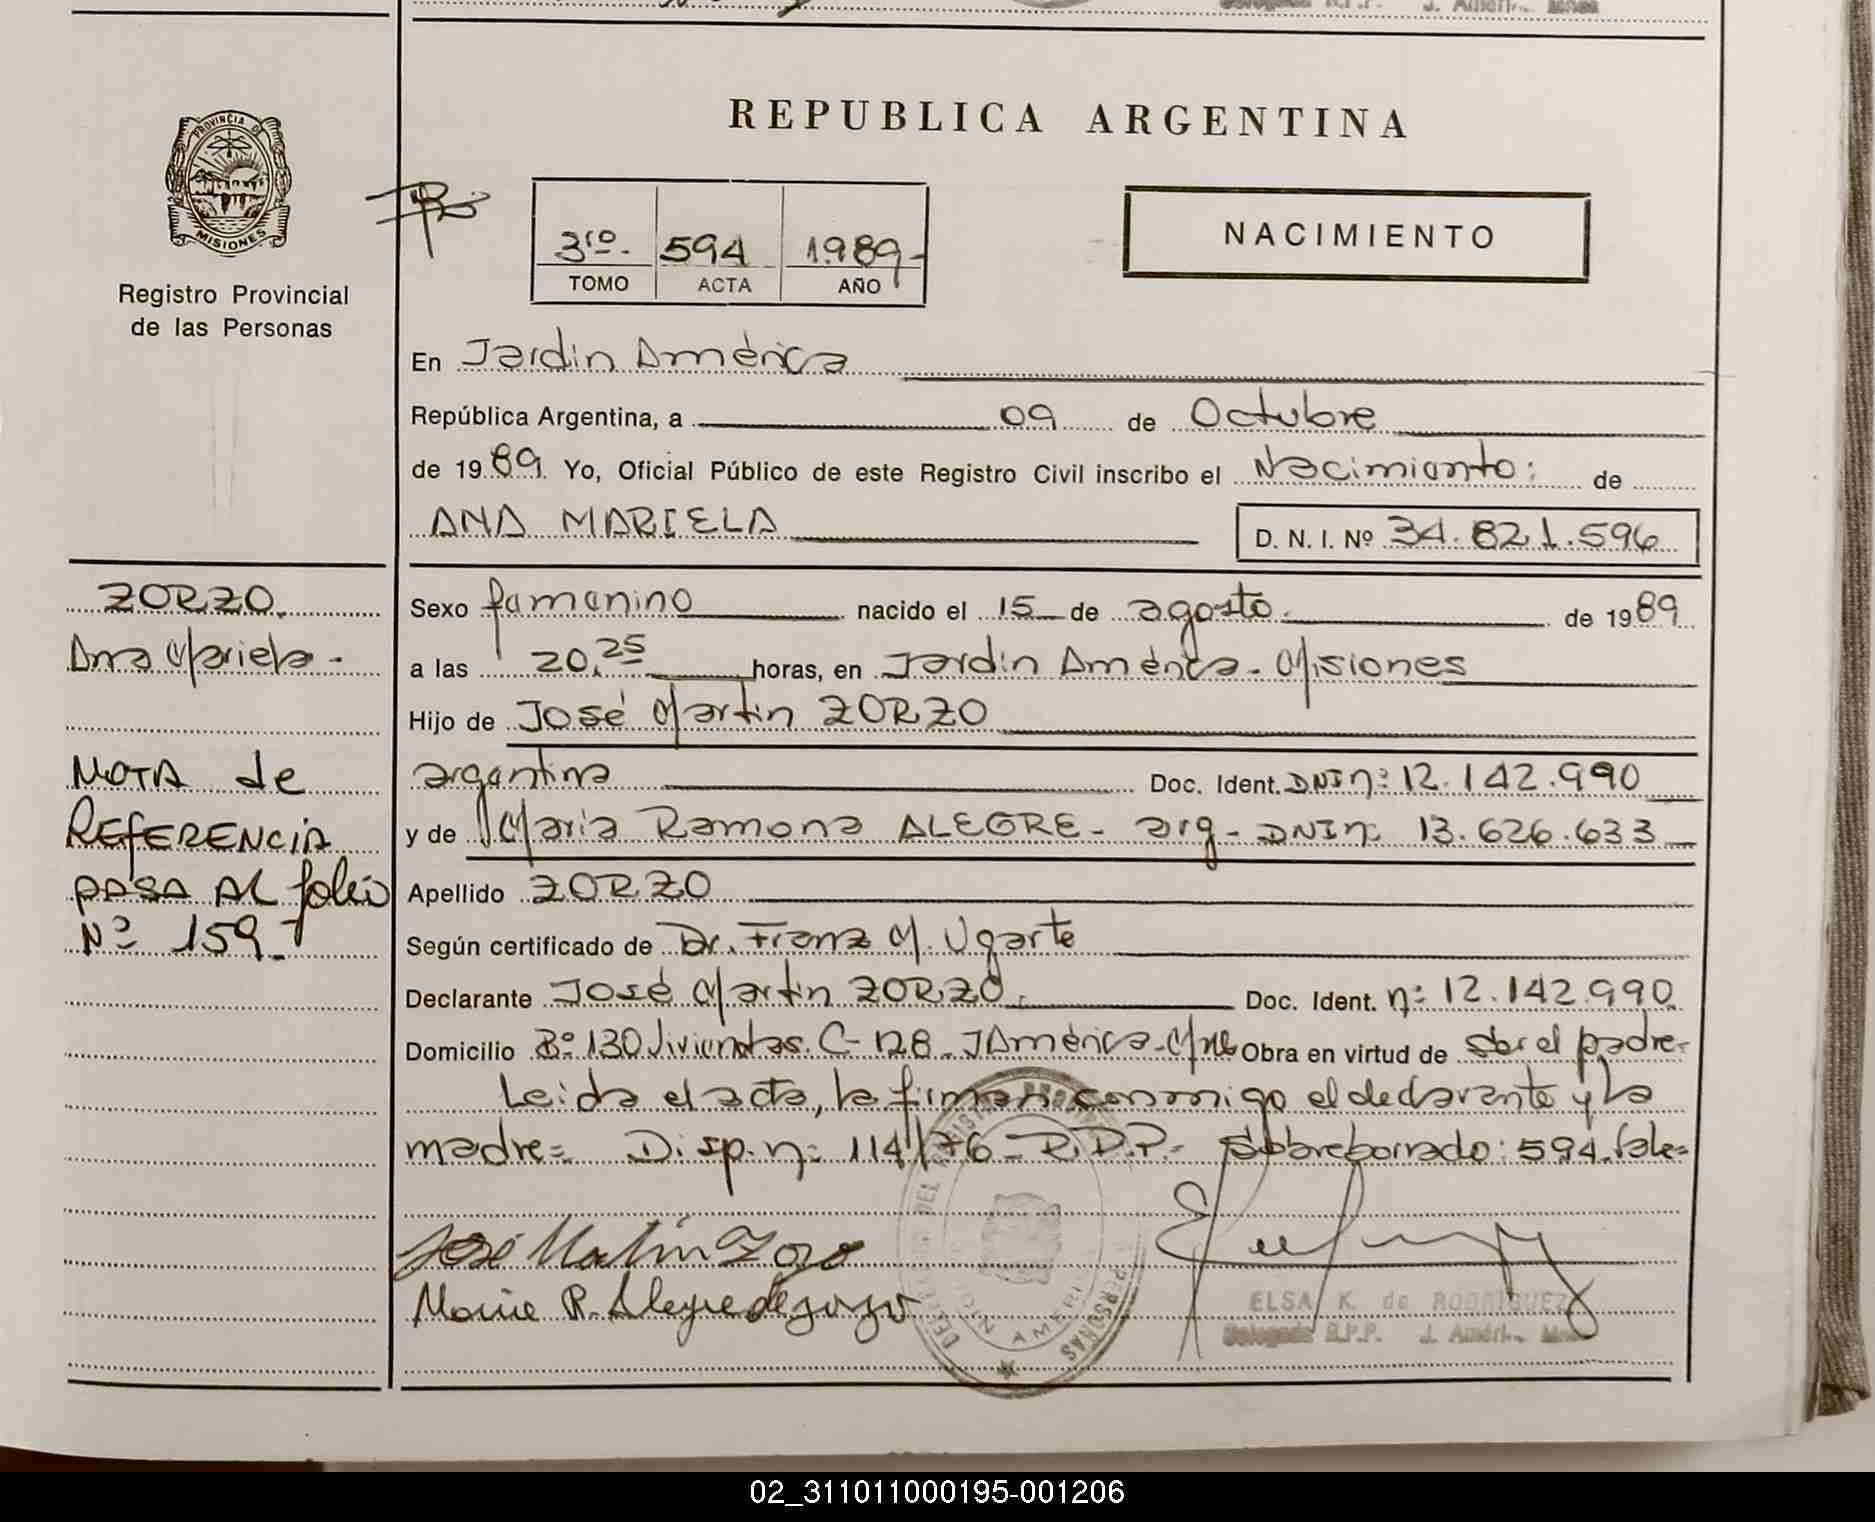 REPUBLICA ARGENTINA
PROVINCIA DE
MISIONES
Registro Provincial
de las Personas
3ro- 594 1989-
TOMO ACTA AÑO
NACIMIENTO
En Jardin América
República Argentina, a 09 de Octubre
de 1989. Yo, Oficial Público de este Registro Civil inscribo el Nacimiento: de
ANA MARIELA
D. N. I. Nº 34.821.596
ZORZO.
Ana Mariela-
Sexo femenino nacido el 15 de agosto. de 1989
a las 20,25 horas, en Jardin América- Misiones
Hijo de José Martin ZORZO
argentina Doc. Ident. DNI nº 12.142.990
y de Maria Ramona ALEGRE- arg- DNI nº 13.626.633
NOTA de
REFERENCIA
PASA AL folio
Nº 159-
Apellido ZORZO
Según certificado de Dr. Franz M. Ugarte
Declarante José Martin ZORZO. Doc. Ident. nº 12.142.990
Domicilio Bº 130 Viviendas. C- 128- J América- Mnes Obra en virtud de ser el padre-
Leida el acta, la firman conmigo el declarante y la
madre= Disp. nº 114/76- R.D.P.- Sobreborrado: 594. Vale=
José Martin Zorzo
Maria R. Alegre de Zorzo
ELSA K. de RODRIGUEZ
Delegada R.P.P. J. Améri
J. Améri
02_311011000195-001206